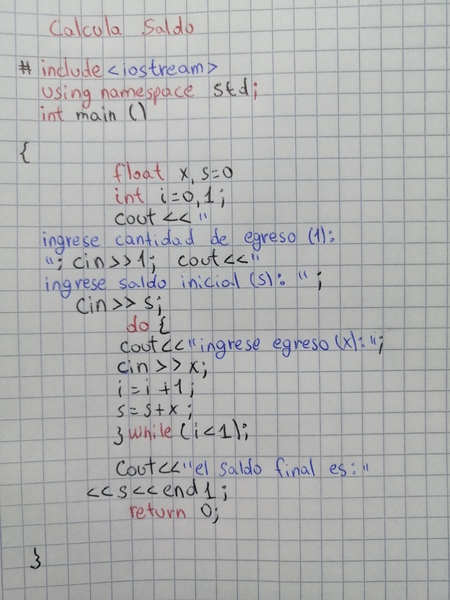 Calcula Saldo
# include <iostream>
using namespace std;
int main ()
{
float x, s=0
int i=0,1;
cout << "
ingrese cantidad de egreso (1):
"; cin>>1; cout<<"
ingrese saldo inicial (s): ";
cin>> s;
do {
cout<<"ingrese egreso (x): ";
cin >> x;
i=i+1;
s=s+x;
} while (i<1);
cout<<"el saldo final es:"
<<s<<end1;
return 0;
}